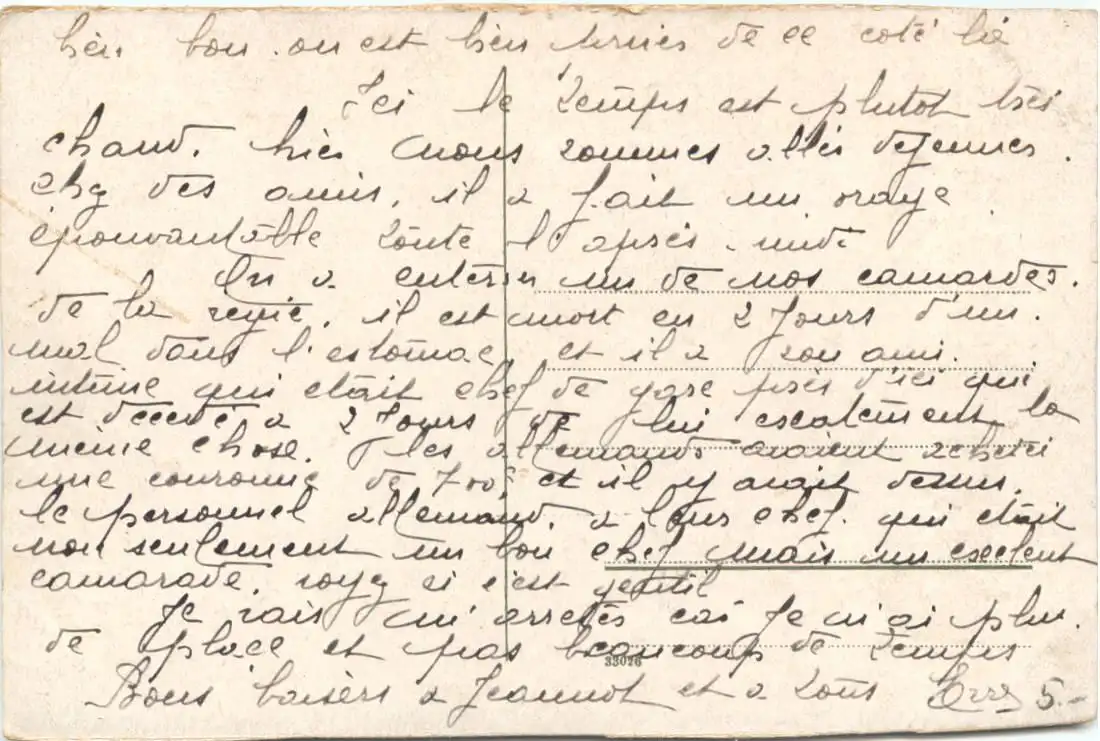 bien bon. on est bien servies de ce coté là
Ici le temps est plutot très
chaud. hier nous sommes allés dejeuner.
chez des amis, il a fait un orage
épouvantable toute l'après midi
On a enterré un de nos camardes.
de la regie. il est mort en 2 Jours d'un.
mal dans l'estomac, et il a son ami.
intime qui était chef de gare près d'ici qui
est décédé a 2 Jours de lui exatement la
meme chose. les allemands avaient acheté
une couronne de 700f et il y avait dessus.
le personnel allemand. a leur chef. qui était
non seulement un bon chef mais un exelent
camarade, voyez si c'est gentil
Je vais m'arreter car Je n'ai plus.
de place et pas beaucoup de temps
33026
Bons baisers a Jeannot et a tous 5.-